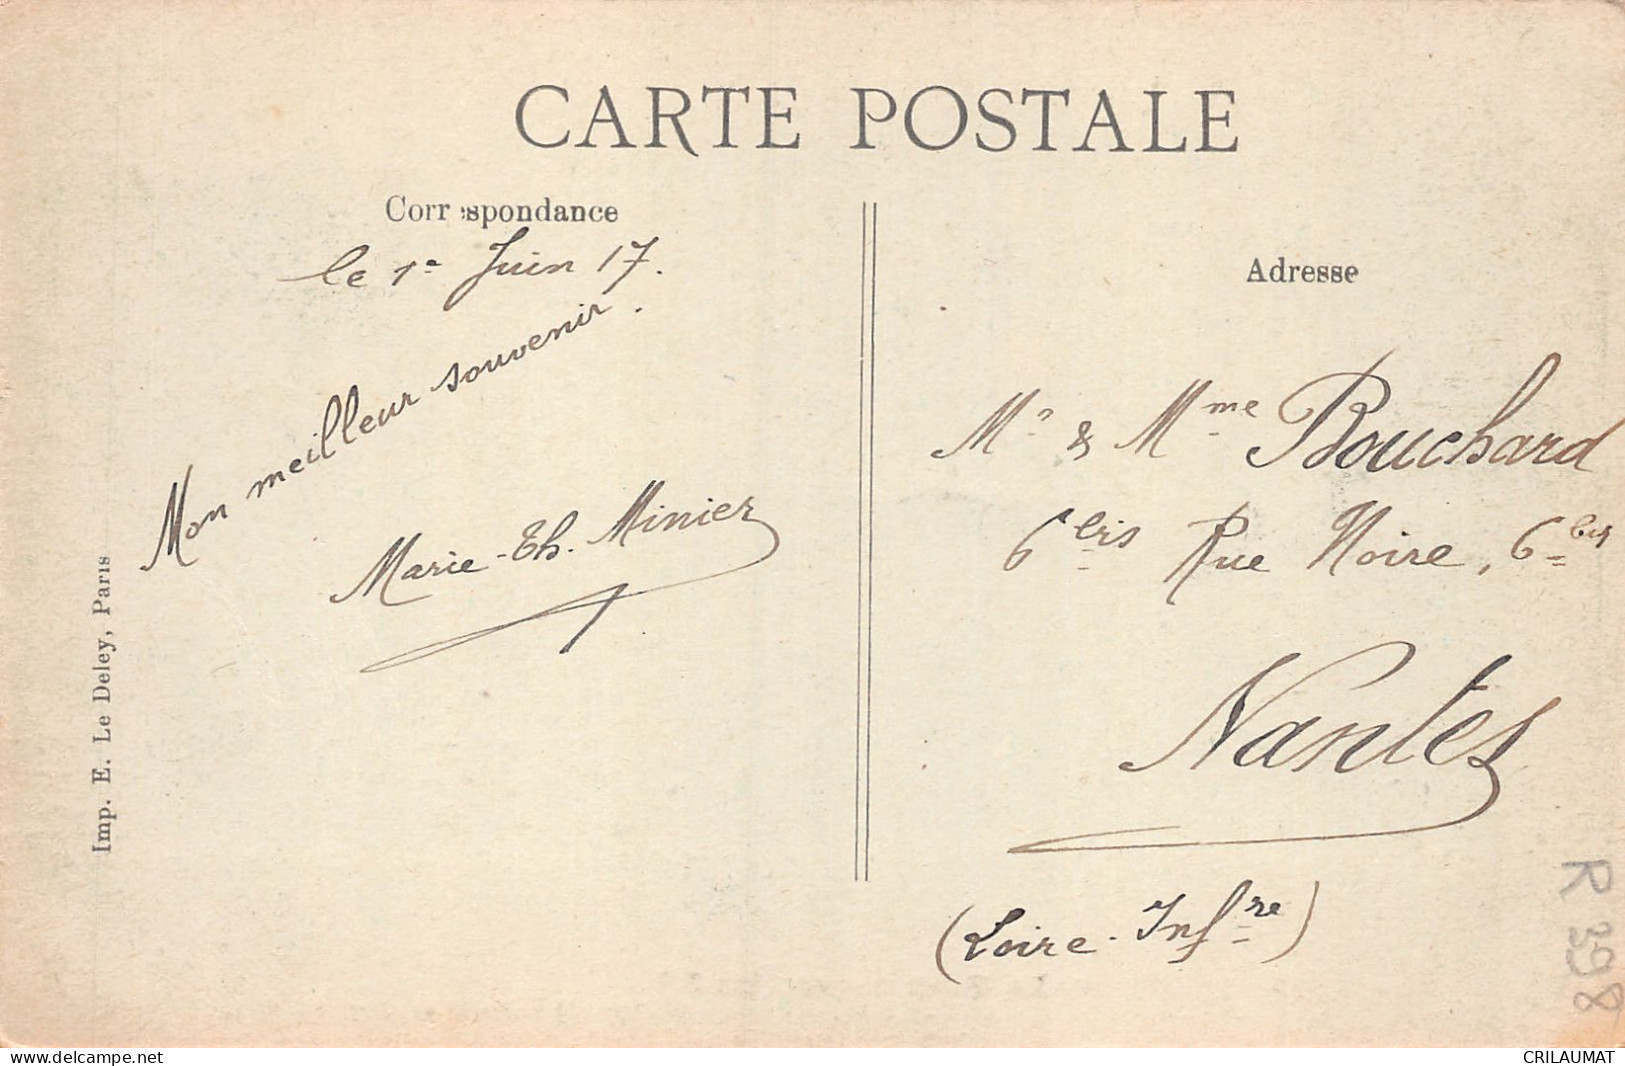 CARTE POSTALE
Correspondance
le 1er Juin 17.
Mon meilleur souvenir.
Marie-Th. Minier
Imp. E. Le Deley, Paris
Adresse
Mr & Mme Bouchard
6 bis Rue Noire, 6 bis
Nantes
(Loire-Infre)
R 398
delcampe.net
CRILAUMAT